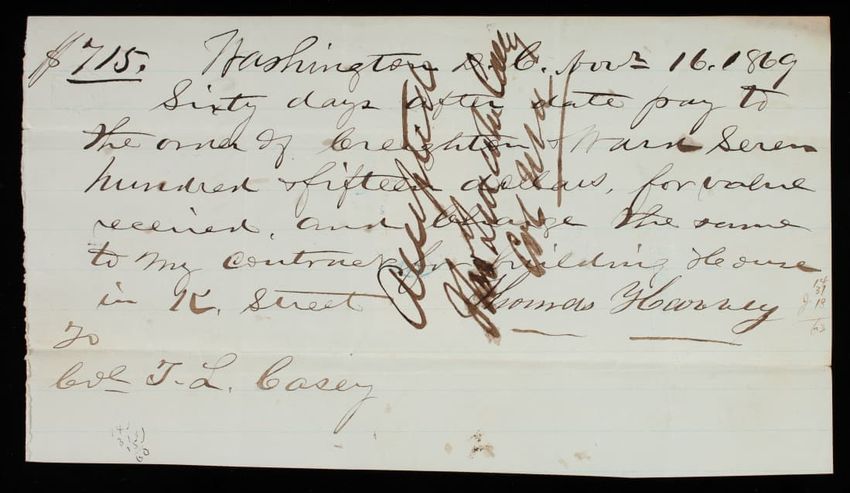 $715. Washington D.C. Novr 16. 1869
Sixty days after date pay to
the order of Creighton & Ward Seven
hundred & fifteen dollars, for value
received, and charge the same
to my contract for building House
in K. Street Thomas Harvey
To
Col T. L. Casey
Accepted
Thos Lincoln Casey
14
31
18
63
14
31
60